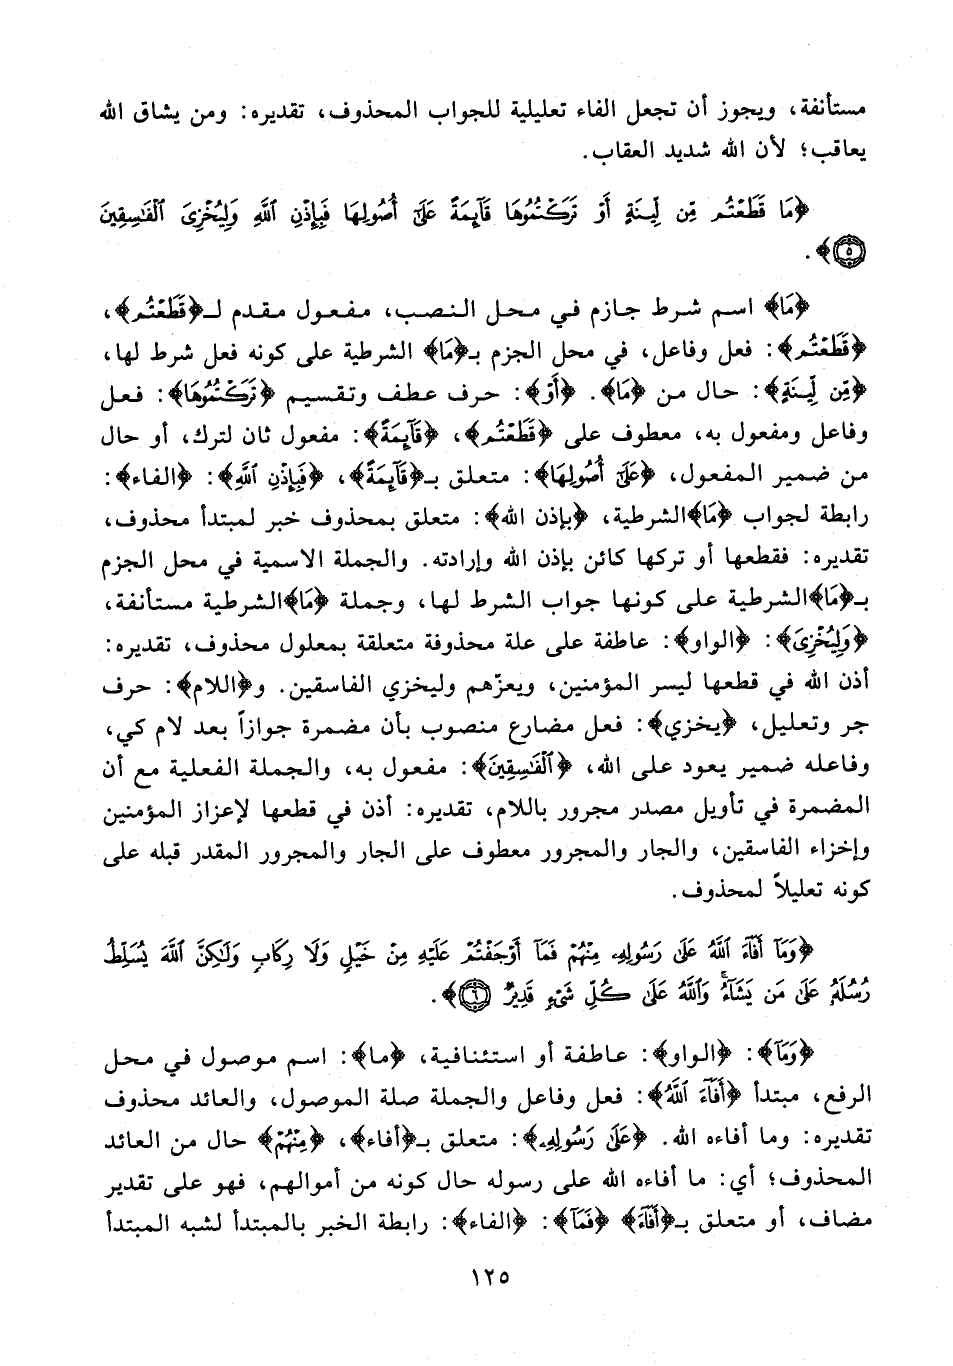 مستأنفة، ويجوز أن تجعل الفاء تعليلية للجواب المحذوف، تقديره: ومن يشاق الله
يعاقب؛ لأن الله شديد العقاب.
﴿مَا قَطَعْتُم مِّن لِّينَةٍ أَوْ تَرَكْتُمُوهَا قَآئِمَةً عَلَىٰٓ أُصُولِهَا فَبِإِذْنِ ٱللَّهِ وَلِيُخْزِىَ ٱلْفَٰسِقِينَ
٥﴾.
﴿مَا﴾ اسم شرط جازم في محل النصب، مفعول مقدم لـ﴿قَطَعْتُم﴾،
﴿قَطَعْتُم﴾: فعل وفاعل، في محل الجزم بـ﴿مَا﴾ الشرطية على كونه فعل شرط لها،
﴿مِّن لِّينَةٍ﴾: حال من ﴿مَا﴾. ﴿أَوْ﴾: حرف عطف وتقسيم ﴿تَرَكْتُمُوهَا﴾: فعل
وفاعل ومفعول به، معطوف على ﴿قَطَعْتُم﴾، ﴿قَآئِمَةً﴾: مفعول ثان لترك، أو حال
من ضمير المفعول، ﴿عَلَىٰٓ أُصُولِهَا﴾: متعلق بـ﴿قَآئِمَةً﴾، ﴿فَبِإِذْنِ ٱللَّهِ﴾: ﴿الفاء﴾:
رابطة لجواب ﴿مَا﴾الشرطية، ﴿بإذن الله﴾: متعلق بمحذوف خبر لمبتدأ محذوف،
تقديره: فقطعها أو تركها كائن بإذن الله وإرادته. والجملة الاسمية في محل الجزم
بـ﴿مَا﴾الشرطية على كونها جواب الشرط لها، وجملة ﴿مَا﴾الشرطية مستأنفة،
﴿وَلِيُخْزِىَ﴾: ﴿الواو﴾: عاطفة على علة محذوفة متعلقة بمعلول محذوف، تقديره:
أذن الله في قطعها ليسر المؤمنين، ويعزّهم وليخزي الفاسقين. و﴿اللام﴾: حرف
جر وتعليل، ﴿يخزي﴾: فعل مضارع منصوب بأن مضمرة جوازاً بعد لام كي،
وفاعله ضمير يعود على الله، ﴿ٱلْفَٰسِقِينَ﴾: مفعول به، والجملة الفعلية مع أن
المضمرة في تأويل مصدر مجرور باللام، تقديره: أذن في قطعها لإعزاز المؤمنين
وإخزاء الفاسقين، والجار والمجرور معطوف على الجار والمجرور المقدر قبله على
كونه تعليلاً لمحذوف.
﴿وَمَآ أَفَآءَ ٱللَّهُ عَلَىٰ رَسُولِهِۦ مِنْهُمْ فَمَآ أَوْجَفْتُمْ عَلَيْهِ مِنْ خَيْلٍ وَلَا رِكَابٍ وَلَٰكِنَّ ٱللَّهَ يُسَلِّطُ
رُسُلَهُۥ عَلَىٰ مَن يَشَآءُۚ وَٱللَّهُ عَلَىٰ كُلِّ شَىْءٍ قَدِيرٌ ٦﴾.
﴿وَمَآ﴾: ﴿الواو﴾: عاطفة أو استئنافية، ﴿ما﴾: اسم موصول في محل
الرفع، مبتدأ ﴿أَفَآءَ ٱللَّهُ﴾: فعل وفاعل والجملة صلة الموصول، والعائد محذوف
تقديره: وما أفاءه الله. ﴿عَلَىٰ رَسُولِهِۦ﴾: متعلق بـ﴿أفاء﴾، ﴿مِنْهُمْ﴾ حال من العائد
المحذوف؛ أي: ما أفاءه الله على رسوله حال كونه من أموالهم، فهو على تقدير
مضاف، أو متعلق بـ﴿أَفَآءَ﴾ ﴿فَمَآ﴾: ﴿الفاء﴾: رابطة الخبر بالمبتدأ لشبه المبتدأ
١٢٥